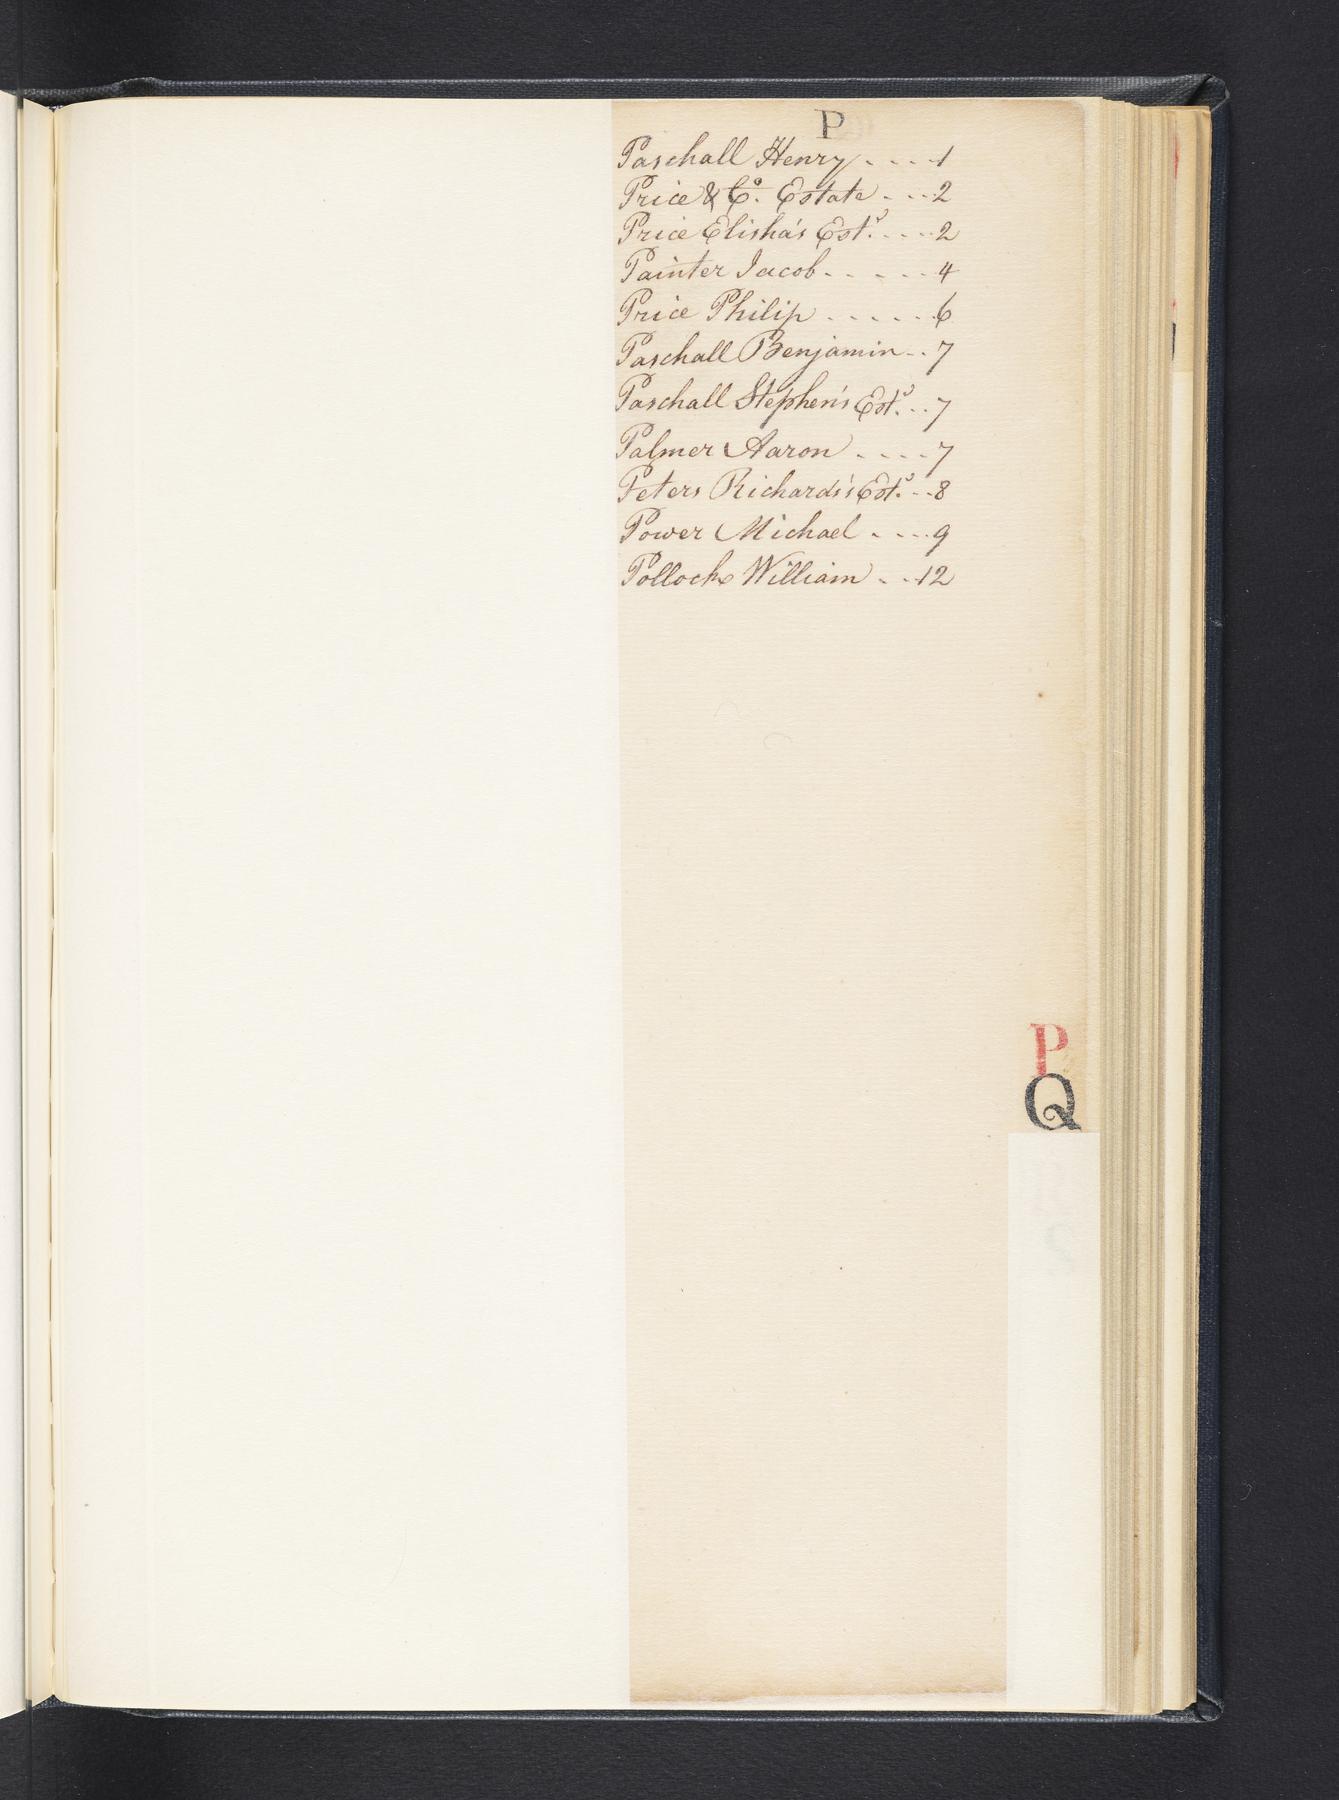 P
Paschall Henry . . . . 1
Price & Co. Estate . . . . 2
Price Elisha's Est.e . . . . . 2
Painter Jacob . . . . . . 4
Price Philip . . . . . . 6
Paschall Benjamin . . . 7
Paschall Stephen's Est.e . . . 7
Palmer Aaron . . . . . 7
Peters Richards's Est.e . . . 8
Power Michael . . . . . 9
Pollock William . . . 12
P
Q